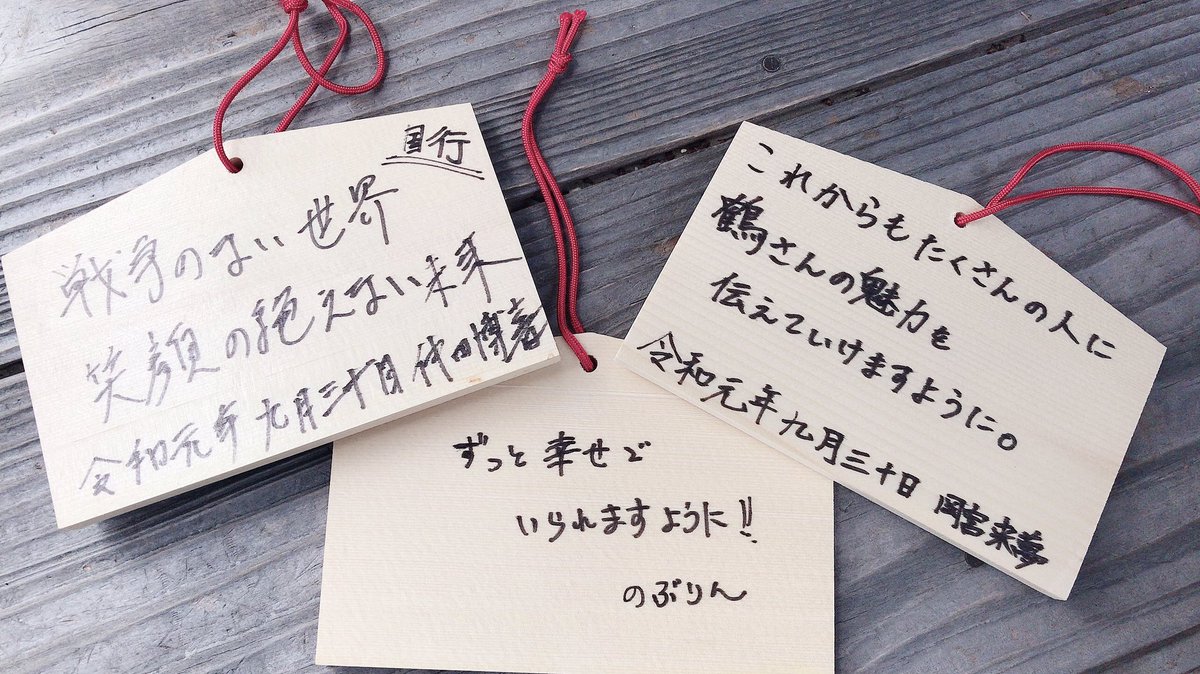 国行
戦争のない世界
笑顔の絶えない未来
令和元年九月三十日
ずっと幸せで
いられますように!!
のぷりん
これからもたくさんの人に
鶴さんの魅力を
伝えていけますように。
令和元年九月三十日 岡宮来夢